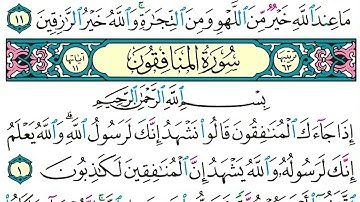 مَا عِندَ ٱللَّهِ خَيْرٌ مِّنَ ٱللَّهْوِ وَمِنَ ٱلتِّجَٰرَةِ ۚ وَٱللَّهُ خَيْرُ ٱلرَّٰزِقِينَ ١١
ترتيبها ٦٣ سُورَةُ المُنَافِقُونَ آياتها ١١
بِسْمِ ٱللَّهِ ٱلرَّحْمَٰنِ ٱلرَّحِيمِ
إِذَا جَآءَكَ ٱلْمُنَٰفِقُونَ قَالُوا۟ نَشْهَدُ إِنَّكَ لَرَسُولُ ٱللَّهِ ۗ وَٱللَّهُ يَعْلَمُ
إِنَّكَ لَرَسُولُهُۥ وَٱللَّهُ يَشْهَدُ إِنَّ ٱلْمُنَٰفِقِينَ لَكَٰذِبُونَ ١